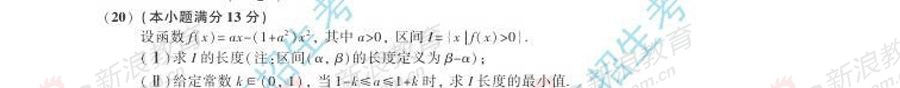 (20)(本小题满分13分)
设函数f(x)=ax-(1+a²)x²,其中a>0,区间I={x|f(x)>0}.
(Ⅰ)求I的长度(注:区间(α,β)的长度定义为β-α);
(Ⅱ)给定常数k∈(0,1),当1-k≤a≤1+k时,求I长度的最小值.